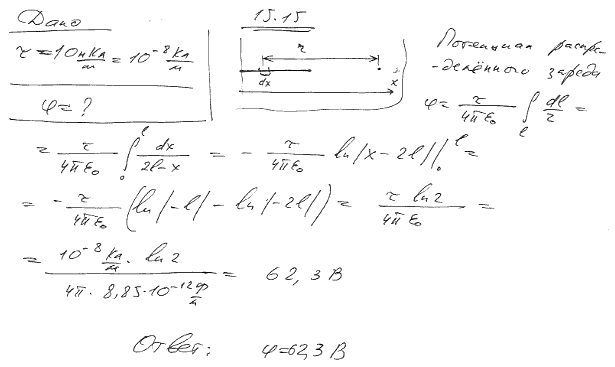 Дано
15.15
τ = 10 нКл/м = 10^-8 Кл/м
φ = ?
r
dx
x
Потенциал распре
-делённого заряда
φ = τ/4πε₀ ∫_l dl/r =
= τ/4πε₀ ∫₀^l dx/(2l-x) = - τ/4πε₀ ln|x-2l||₀^l =
= - τ/4πε₀ (ln|-l| - ln|-2l|) = τ ln2/4πε₀ =
= 10^-8 Кл/м · ln2 / 4π · 8,85·10^-12 Ф/м = 62,3 В
Ответ: φ=62,3 В